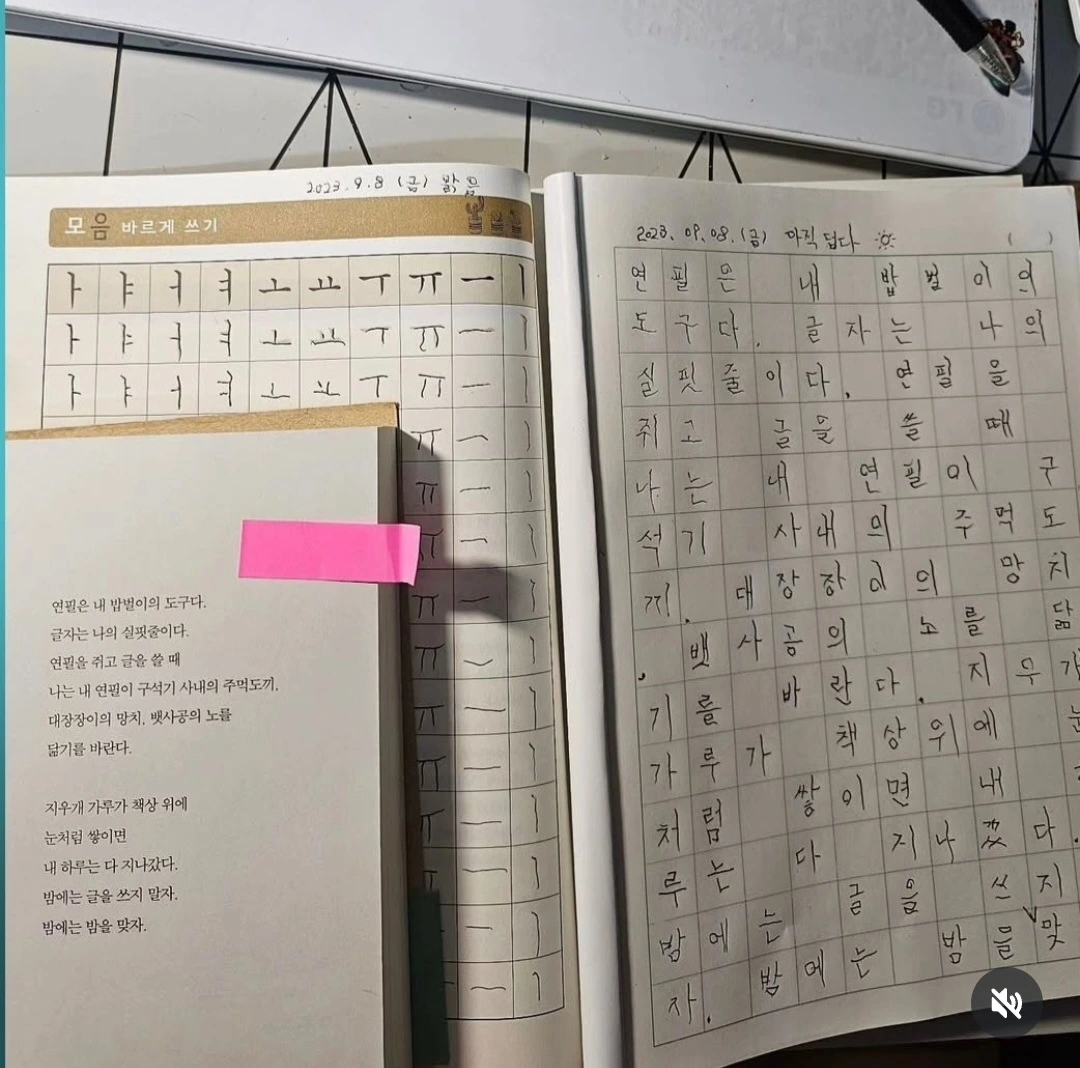 2023.9.8 (금) 맑음
모음 바르게 쓰기
ㅏ ㅑ ㅓ ㅕ ㅗ ㅛ ㅜ ㅠ ㅡ ㅣ
ㅏ ㅑ ㅓ ㅕ ㅗ ㅛ ㅜ ㅠ ㅡ ㅣ
ㅏ ㅑ ㅓ ㅕ ㅗ ㅛ ㅜ ㅠ ㅡ ㅣ
ㅠ ㅡ ㅣ
ㅠ ㅡ ㅣ
ㅠ ㅡ ㅣ
ㅠ ㅡ ㅣ
ㅠ ㅡ ㅣ
ㅠ ㅡ ㅣ
ㅠ ㅡ ㅣ
ㅠ ㅡ ㅣ
ㅠ ㅡ ㅣ
ㅡ ㅣ
ㅡ ㅣ
연필은 내 밥벌이의 도구다.
글자는 나의 실핏줄이다.
연필을 쥐고 글을 쓸 때
나는 내 연필이 구석기 사내의 주먹도끼,
대장장이의 망치, 뱃사공의 노를
닮기를 바란다.
지우개 가루가 책상 위에
눈처럼 쌓이면
내 하루는 다 지나갔다.
밤에는 글을 쓰지 말자.
밤에는 밤을 맞자.
2023. 09. 08. (금) 아직 덥다
연필은 내 밥벌이의
도구다. 글자는 나의
실핏줄이다. 연필을
쥐고 글을 쓸 때
나는 내 연필이 구
석기 사내의 주먹도
끼. 대장장이의 망치
, 뱃사공의 노를 닮
기를 바란다. 지우개
가루가 책상 위에 눈
처럼 쌓이면 내
루는 다 지나갔다.
밤에는 글을 쓰지
밤에는 밤을 맞
자.
LG